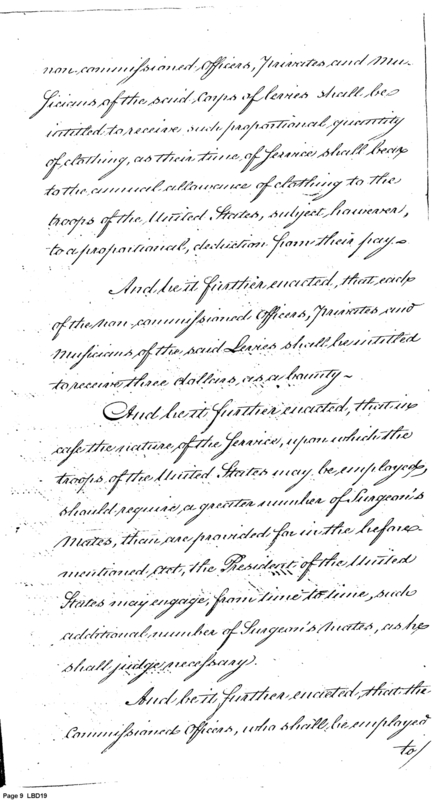 non commissioned Officers, Privates and Mu-
sicians of the said Corps of levies shall be
intitled to receive such proportional quantity
of clothing, as their time of Service shall bear
to the annual allowance of clothing to the
troops of the United States, subject, however,
to a proportional, deduction from their pay.
And be it further enacted, that each
of the non-commissioned Officers, Privates and
Musicians of the said Levies shall be intitled
to receive three dollars, as a bounty-
And be it further enacted, that in
case the nature of the Service, upon which the
troops of the United States may be employed,
should require, a greater number of Surgeon's
Mates, than are provided for in the before-
mentioned act, the President of the United
States may engage, from time to time, such
additional number of Surgeon's Mates, as he
shall judge necessary.
And be it further enacted, that the
Commissioned Officers, who shall be employed
to/
Page 9 LBD19